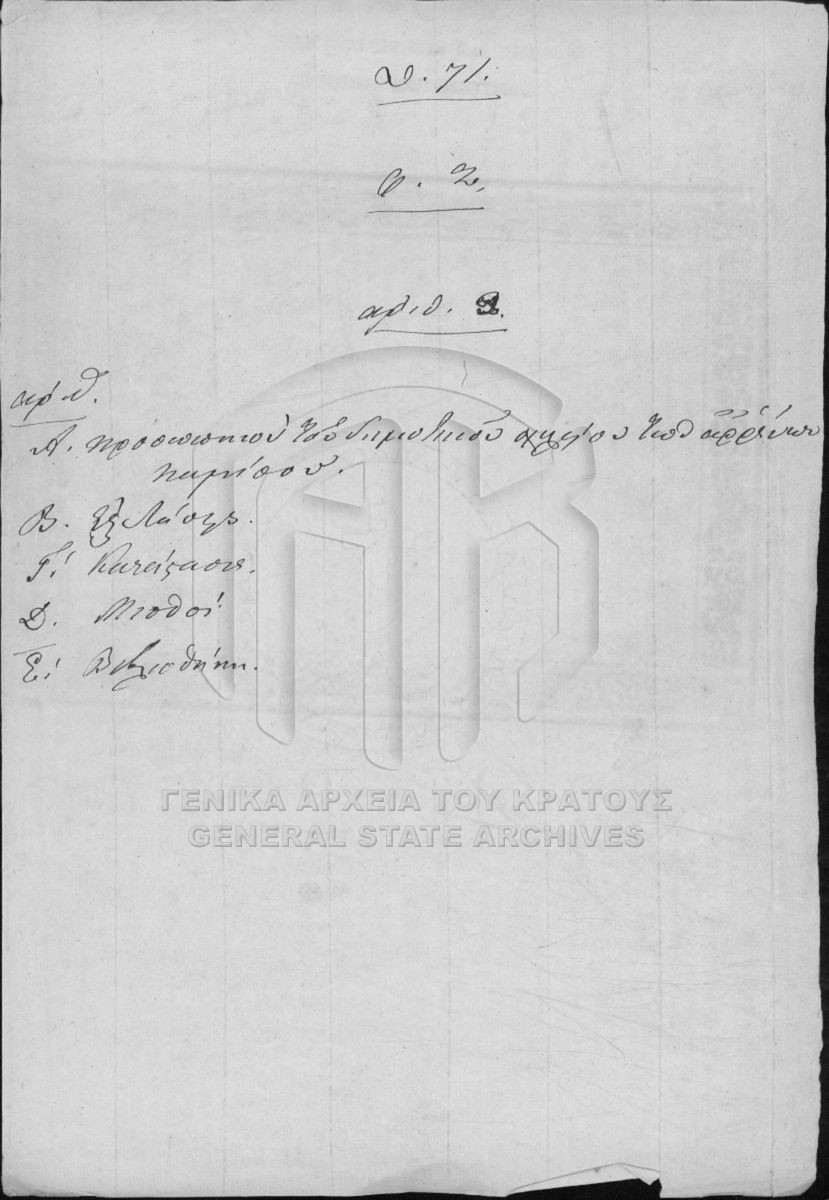 Δ. 71.
φ. 2.
αριθ. 3.
αριθ.
Α. προσωπικού του δημοτικού σχολείου των αρρένων
Παμίσου.
Β. Εξετάσεις.
Γ! Κατάστασις.
Δ. Μισθοί
Ε! Βιβλιοθήκη.
ΓΕΝΙΚΑ ΑΡΧΕΙΑ ΤΟΥ ΚΡΑΤΟΥΣ
GENERAL STATE ARCHIVES